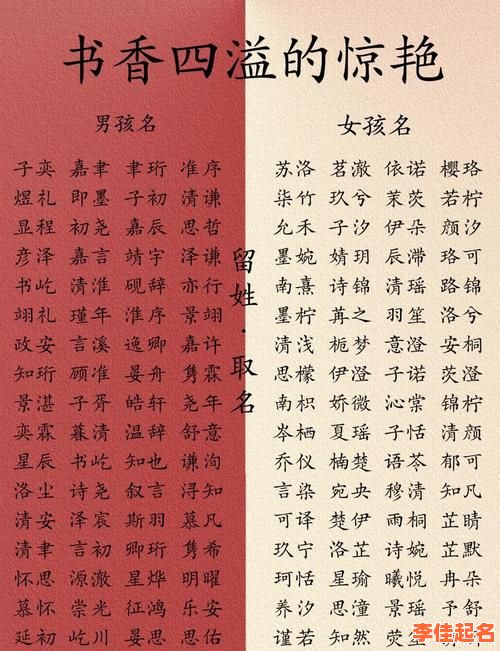 书香四溢的惊艳
男孩名
子奕 嘉聿 聿珩 准序
煜礼 即墨 子初 清谦
显程 初尧 嘉辰 思哲
彦泽 嘉言 靖宇 泽谦
书屹 清淮 砚辞 亦行
翊礼 瑾年 淮序 景翊
政安 言溪 逸卿 嘉许
知珩 顾准 晏舟 隽霖
景湛 子胥 皓轩 尧年
奕霖 暮清 温辞 舒意
星辰 书屹 知也 谦洵
洛尘 诗尧 叙言 浔知
清安 泽宸 斯羽 慕凡
清聿 言初 卿珩 隽希
怀思 源澈 星烨 明曜
慕怀 崇光 征鸿 乐安
延初 屹川 晏思 思佑
留姓·取名
女孩名
苏洛 茗澈 依诺 樱珞
柒竹 玖兮 茉茨 若柠
允禾 子汐 伊朵 颜汐
墨婉 婧玥 辰滞 珞可
南熹 诗锦 清瑶 路锦
墨柠 苒之 羽笙 洛兮
清浅 栀梦 意澄 安桐
思檬 伊澄 子诺 茨澄
南枳 娇微 沁棠 锦柠
岑栖 夏瑶 子恬 清颜
乔仪 楠楚 语苓 郁可
言染 宛央 穆清 知凡
可译 楚伊 雨桐 芷晴
玖宁 洛芷 诗婉 芷默
珂恬 星瑜 曦悦 冉朵
养汐 思潼 景瑶 予舒
谨若 知然 荧笙
李佳起名